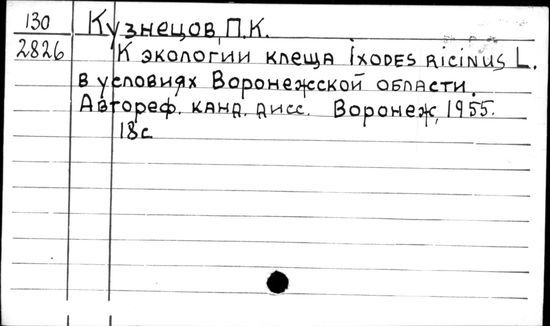 130 Кузнецов, П.К.
2826 К экологии клеща Ixodes ricinus L.
в условиях Воронежской области.
Автореф. канд. дисс. Воронеж, 1955.
18с